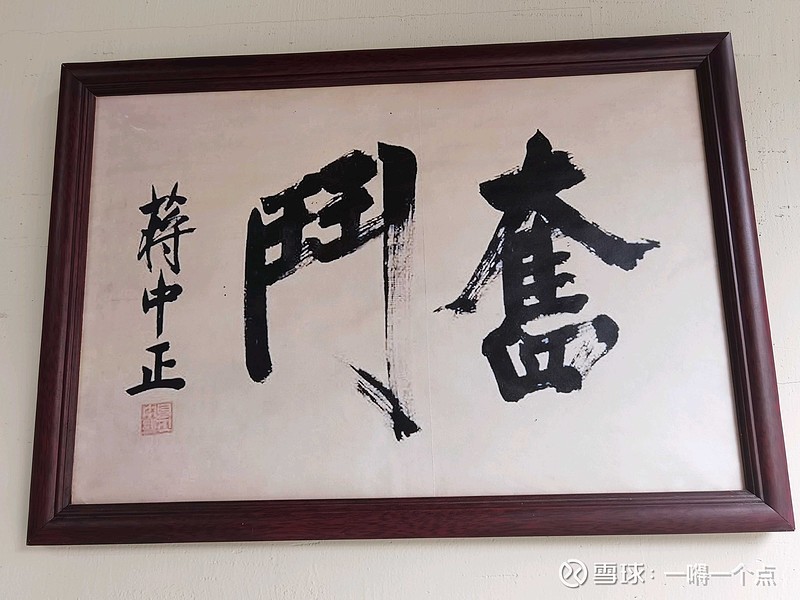 奮鬥
蔣中正
雪球：一嘚一个点